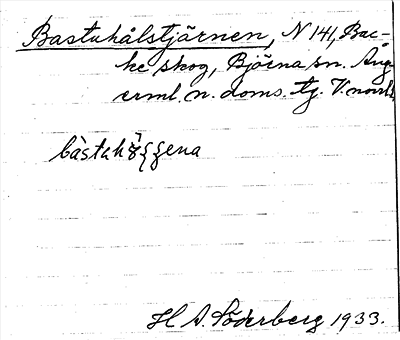 Bastuhålstjärnen, N 141, Bac-
ke skog, Björna sn. Ång
erml. n. doms. tg. V.norrl.
H A. Söderberg 1933.